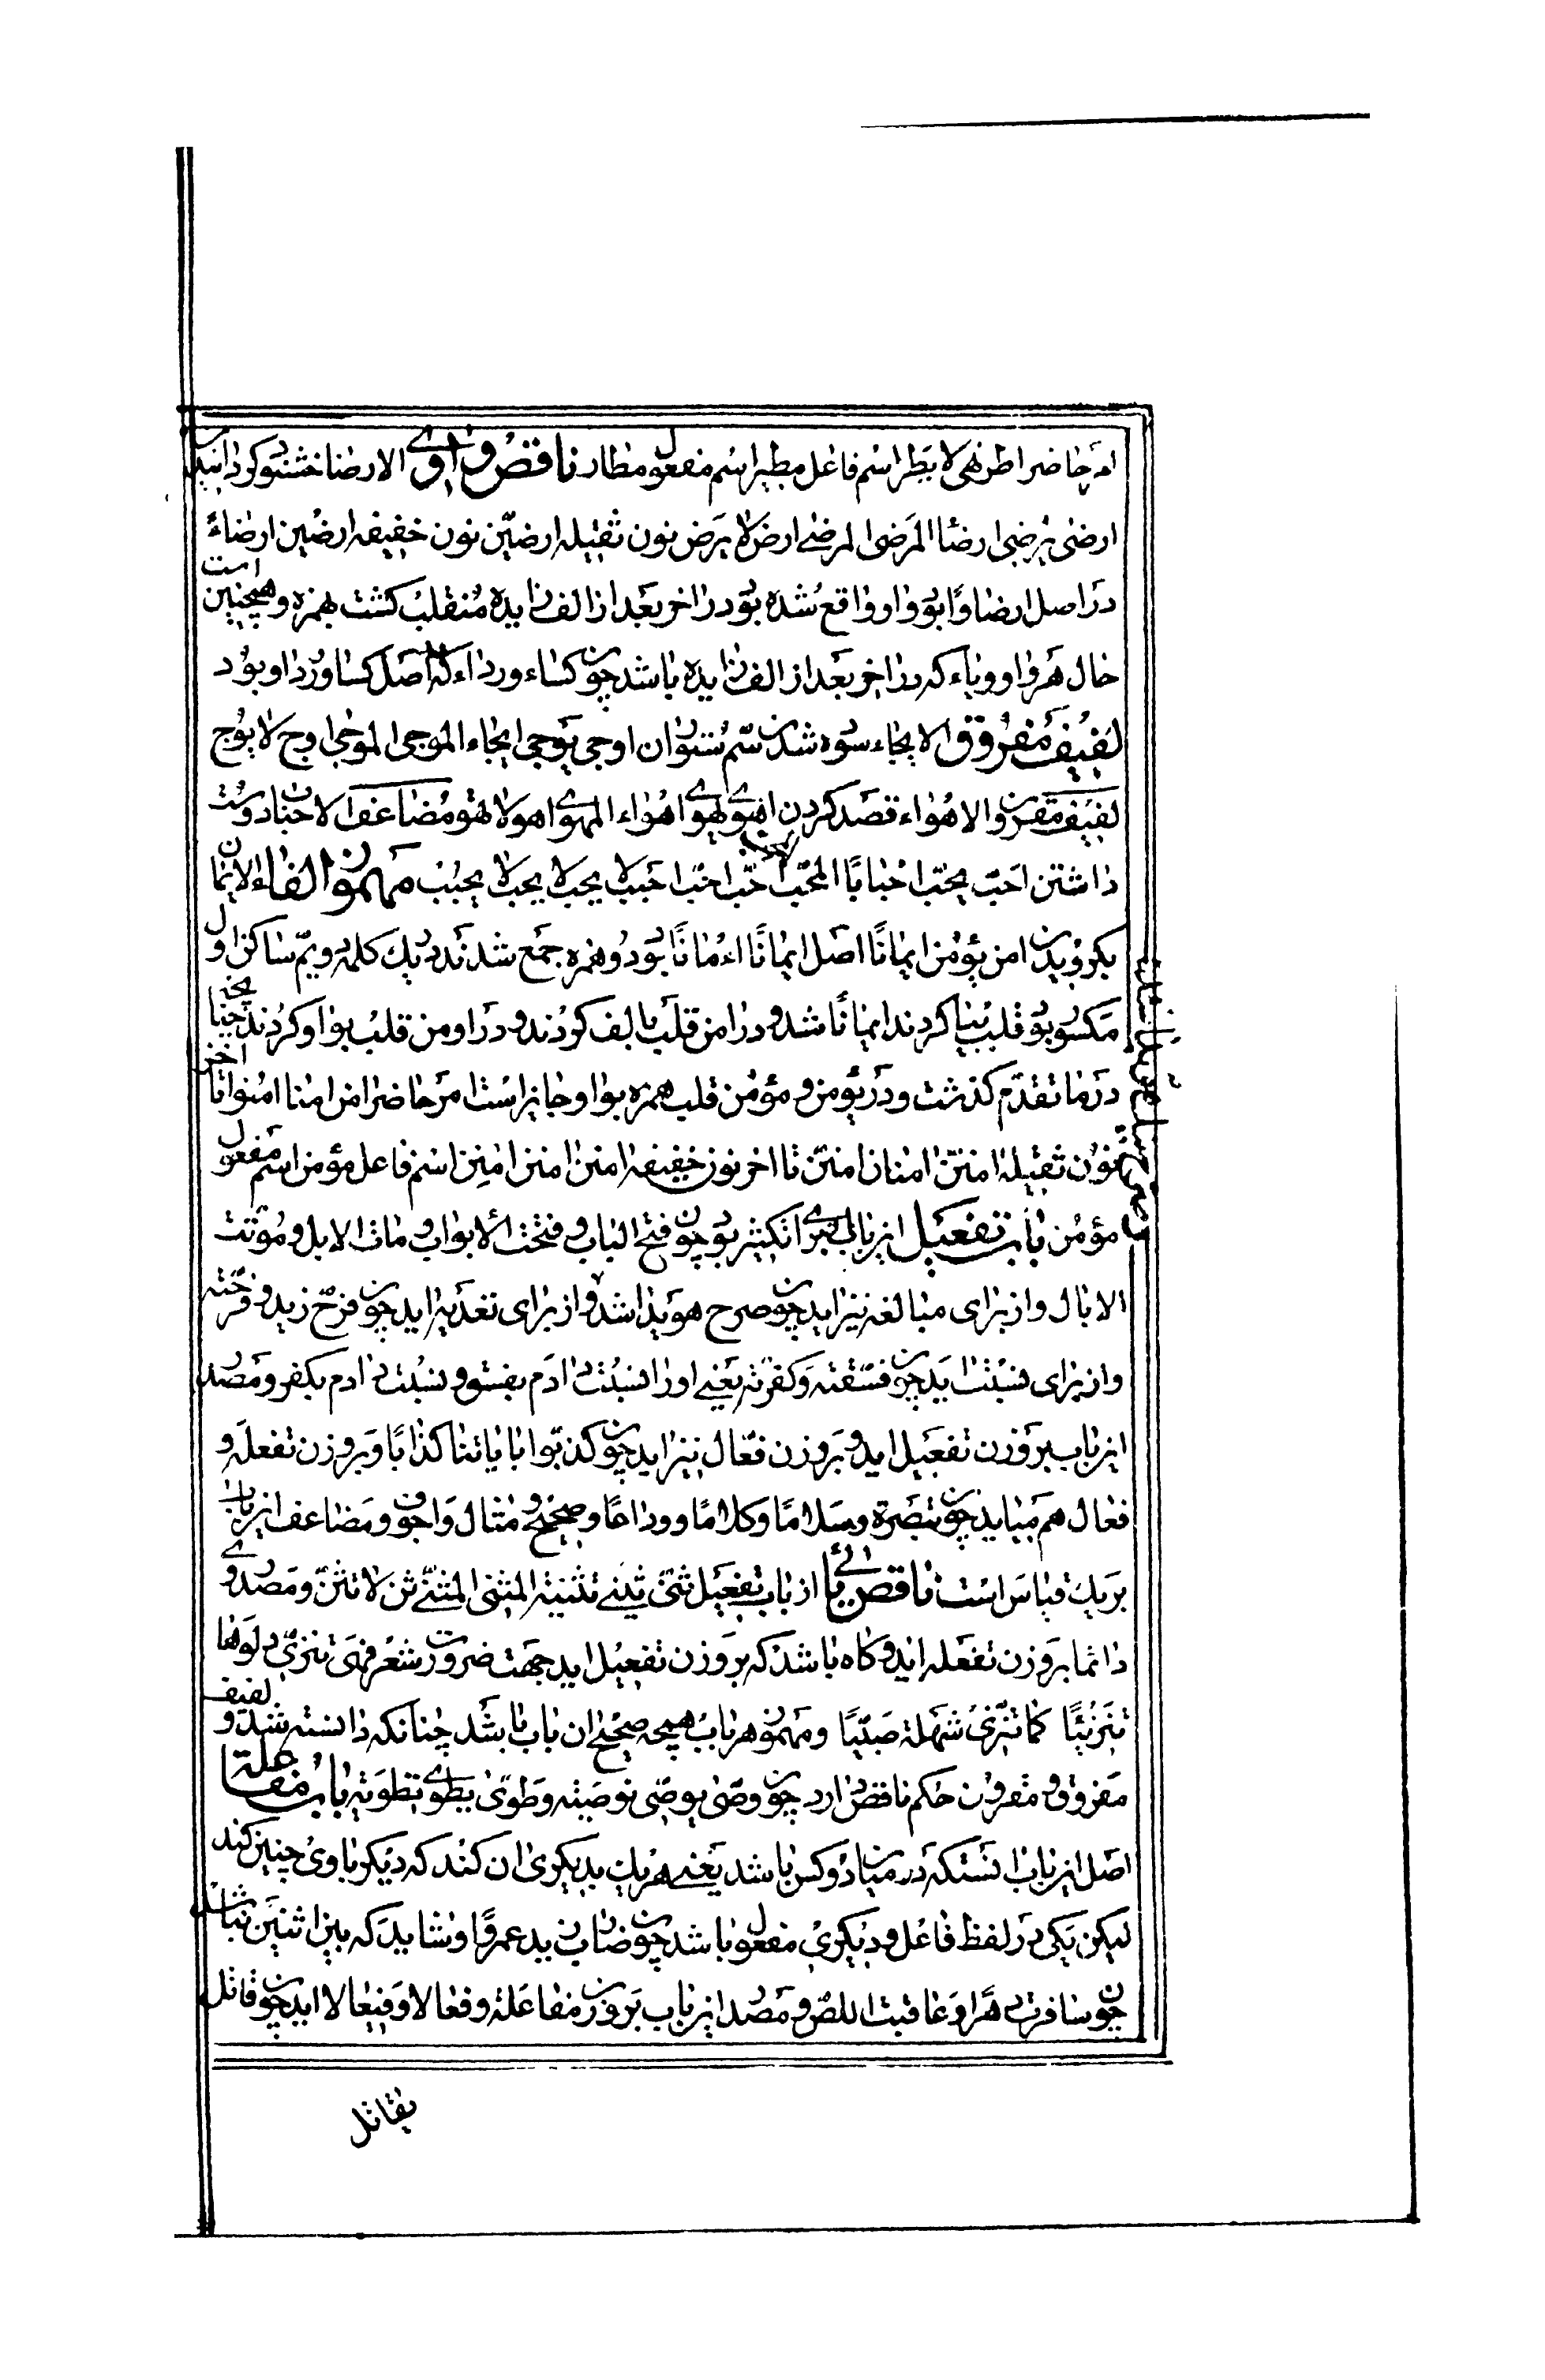 امر حاضر اطر نهی لا یطر اسم فاعل مطیر اسم مفعول مطار ناقص واوی الارضا خشنود کردانیدن
ارضی یرضی ارضاء المرضی المرضی ارض لا یرض نون ثقیله ارضینّ نون خفیفه ارضین ارضاءً
در اصل ارضاوًا بود واو واقع شده بود در اخر بعد از الف زایده منقلب کشت بهمزه و همچنین است
حال هر واو و یاء که در اخر بعد از الف زایده باشد چون کساء و رداء که در اصل کساو و رداو بود
لفیف مفروق الایجاء سوده شدن سم ستوران اوجی یوجی ایجاء الموجی الموجی اوج لا یوج
لفیف مقرون الاهواء قصد کردن اهوی یهوی اهواء المهوی اهو لا تهو مضاعف الاحباب دوست
داشتن احبّ یحبّ احبابًا المحبّ احبّ احبّ احبب لا یحب لا یحب لا یحبب مهموز الفاء الایمان
بکرویدن امن یؤمن ایمانًا اصل ایمانًا اءمانًا بود دو همزه جمع شدند در یک کلمه دویم ساکن اول
مکسور بود قلب بیا کردند ایمانًا شد و در امن قلب بالف کردند و در اومن قلب بواو کردند چنانچه
در ما تقدّم کذشت و در یؤمن و مؤمن قلب همزه بواو جایز است امر حاضر امن امنا امنوا تا اخر
نون ثقیله امننّ امنان امننّ تا اخر نون خفیفه امنن امنن امنن اسم فاعل مؤمن اسم مفعول
مؤمن باب تفعیل این باب برای تکثیر بود چون فتح الباب و فتّحت الابواب و مات الابل و موّتت
الابال و از برای مبالغه نیز اید چون صرح هویدا شد و از برای تعدیه اید چون فرح زید و فرّحته
و از برای نسبت اید چون فسّقته و کفّرته یعنی او را نسبت دادم بفسق و نسبت دادم بکفر و مصدر
این باب بر وزن تفعیل اید و بر وزن فعّال نیز اید چون کذّبوا بایاتنا کذابًا و بر وزن تفعله و
فعال هم میاید چون تبصرة و سلامًا و کلامًا و وداعًا و صحیح و مثال و اجوف و مضاعف این باب
بر یک قیاس است ناقص یائی از باب تفعیل ثنّی یثنی تثنیة المثنی المثنّی ثن لا تثنّ و مصدر وی
دائما بر وزن تفعله اید و کاه باشد که بر وزن تفعیل اید جهت ضرورت شعر فهی تنزّی دلوها
تنزیًّا کما تنزّی شهلة صبیّا و مهموز هر باب همچه صحیح ان باب باشد چنانکه دانسته شد و لفیف
مفروق و مقرون حکم ناقص دارد چون وصّی یوصّی توصیته و طوّی یطوی تطویته باب مفاعله
اصل این باب انستکه در میان دو کس باشد یعنی هر یک بدیکری ان کند که دیکر با وی چنین کند
لیکن یکی در لفظ فاعل و دیکری مفعول باشد چون ضارب زید عمروًا و نشاید که بین اثنین نباشد
چون سافرت دهرًا و عاقبت اللصّ و مصدر این باب بر وزن مفاعلة و فعالا و فیعالا اید چون قاتل
یقاتل